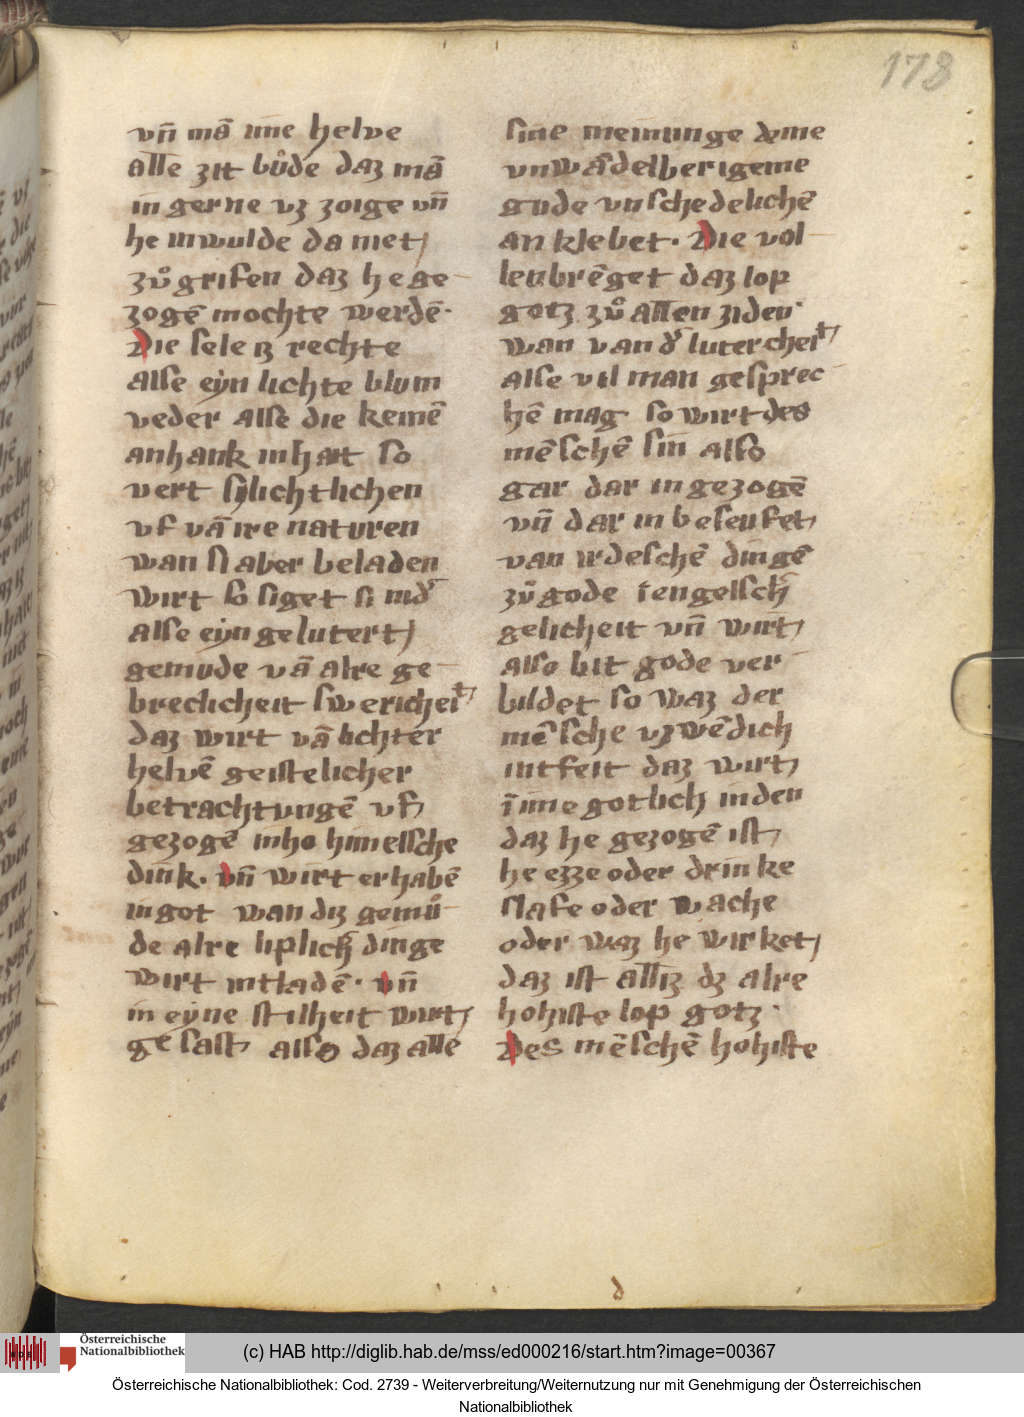 178
vn̄ mā ime helve
alle zit bůde daz mā
in gerne vz zoige vn̄
he inwulde da niet
zů grifen daz he ge-
zogē mochte werdē·
Die sele iz rechte
alse eyn lichte blum
veder alse die keinē
anhank inhait so
vert sy lichtlichen
vf vā ire naturen
wan si aber beladen
wirt so siget si nid'
alse eyn gelutert
gemude vā alre ge-
breclicheit swericheit
daz wirt vā lichter
helvē geistelicher
betrachtungē vf
gezogē inho himelsche
dink· vn̄ wirt erhabē
in got wan diz gemů-
de alre liplich' dinge
wirt intladē· vn̄
in eyne stilheit wirt
gesast also daz alle
sine meinunge deme
vnwādelberigeme
gude vnschedelichē
an klebet· Die vol-
lenbrēget daz lop
gotz zů allen ziden·
wan van d' lutercheit
alse vil man gesprec-
hē mag so wirt des
mēschē sin also
gar dar in gezogē
vn̄ dar in beseufet
van irdeschē dingē
zů gode i engelsch'
gelicheit vn̄ wirt
also bit gode ver-
bildet so waz der
mēsche vzwēdich
intfeit daz wirt
ī ime gotlich in den
daz he gezogē ist
he ezze oder drinke
slafe oder wache
oder waz he wirket
daz ist alliz dz alre
hohiste lop gotz·
Des mēschē hohiste
d
Österreichische
Nationalbibliothek
(c) HAB http://diglib.hab.de/mss/ed000216/start.htm?image=00367
Österreichische Nationalbibliothek: Cod. 2739 - Weiterverbreitung/Weiternutzung nur mit Genehmigung der Österreichischen
Nationalbibliothek